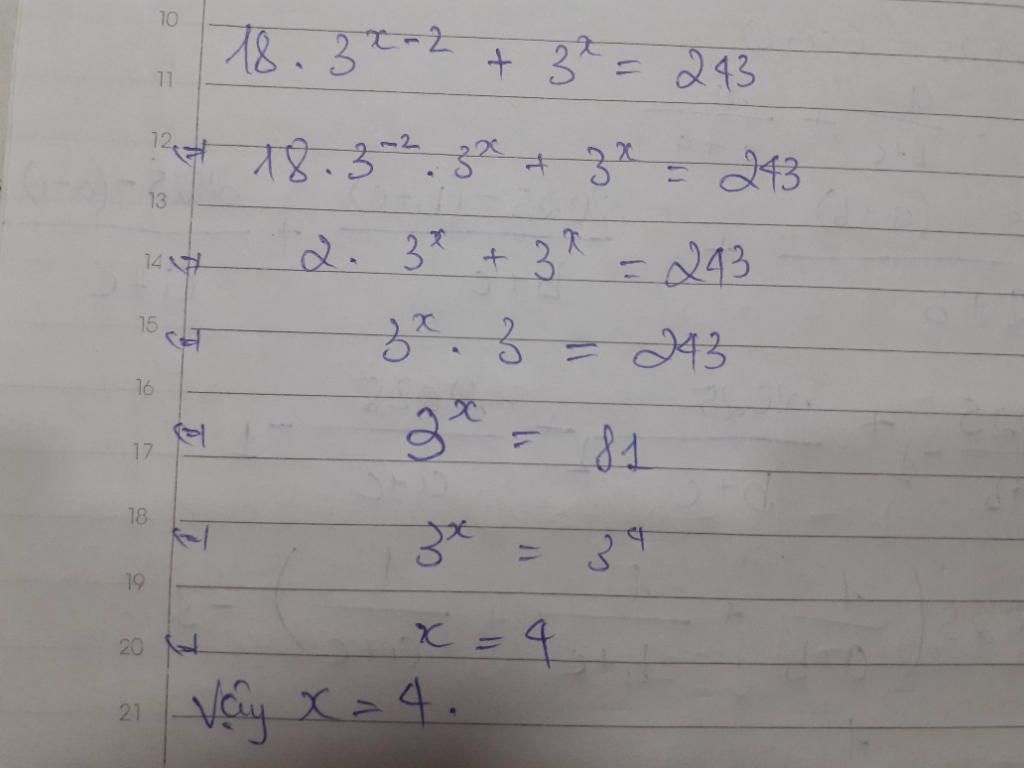 10
18 . 3^{x-2} + 3^x = 243
11
12 ⇔ 18 . 3^{-2} . 3^x + 3^x = 243
13
14 ⇔ 2 . 3^x + 3^x = 243
15 ⇔ 3^x . 3 = 243
16
17 ⇔ 3^x = 81
18 ⇔ 3^x = 3^4
19
20 ⇔ x = 4
21 Vậy x = 4.